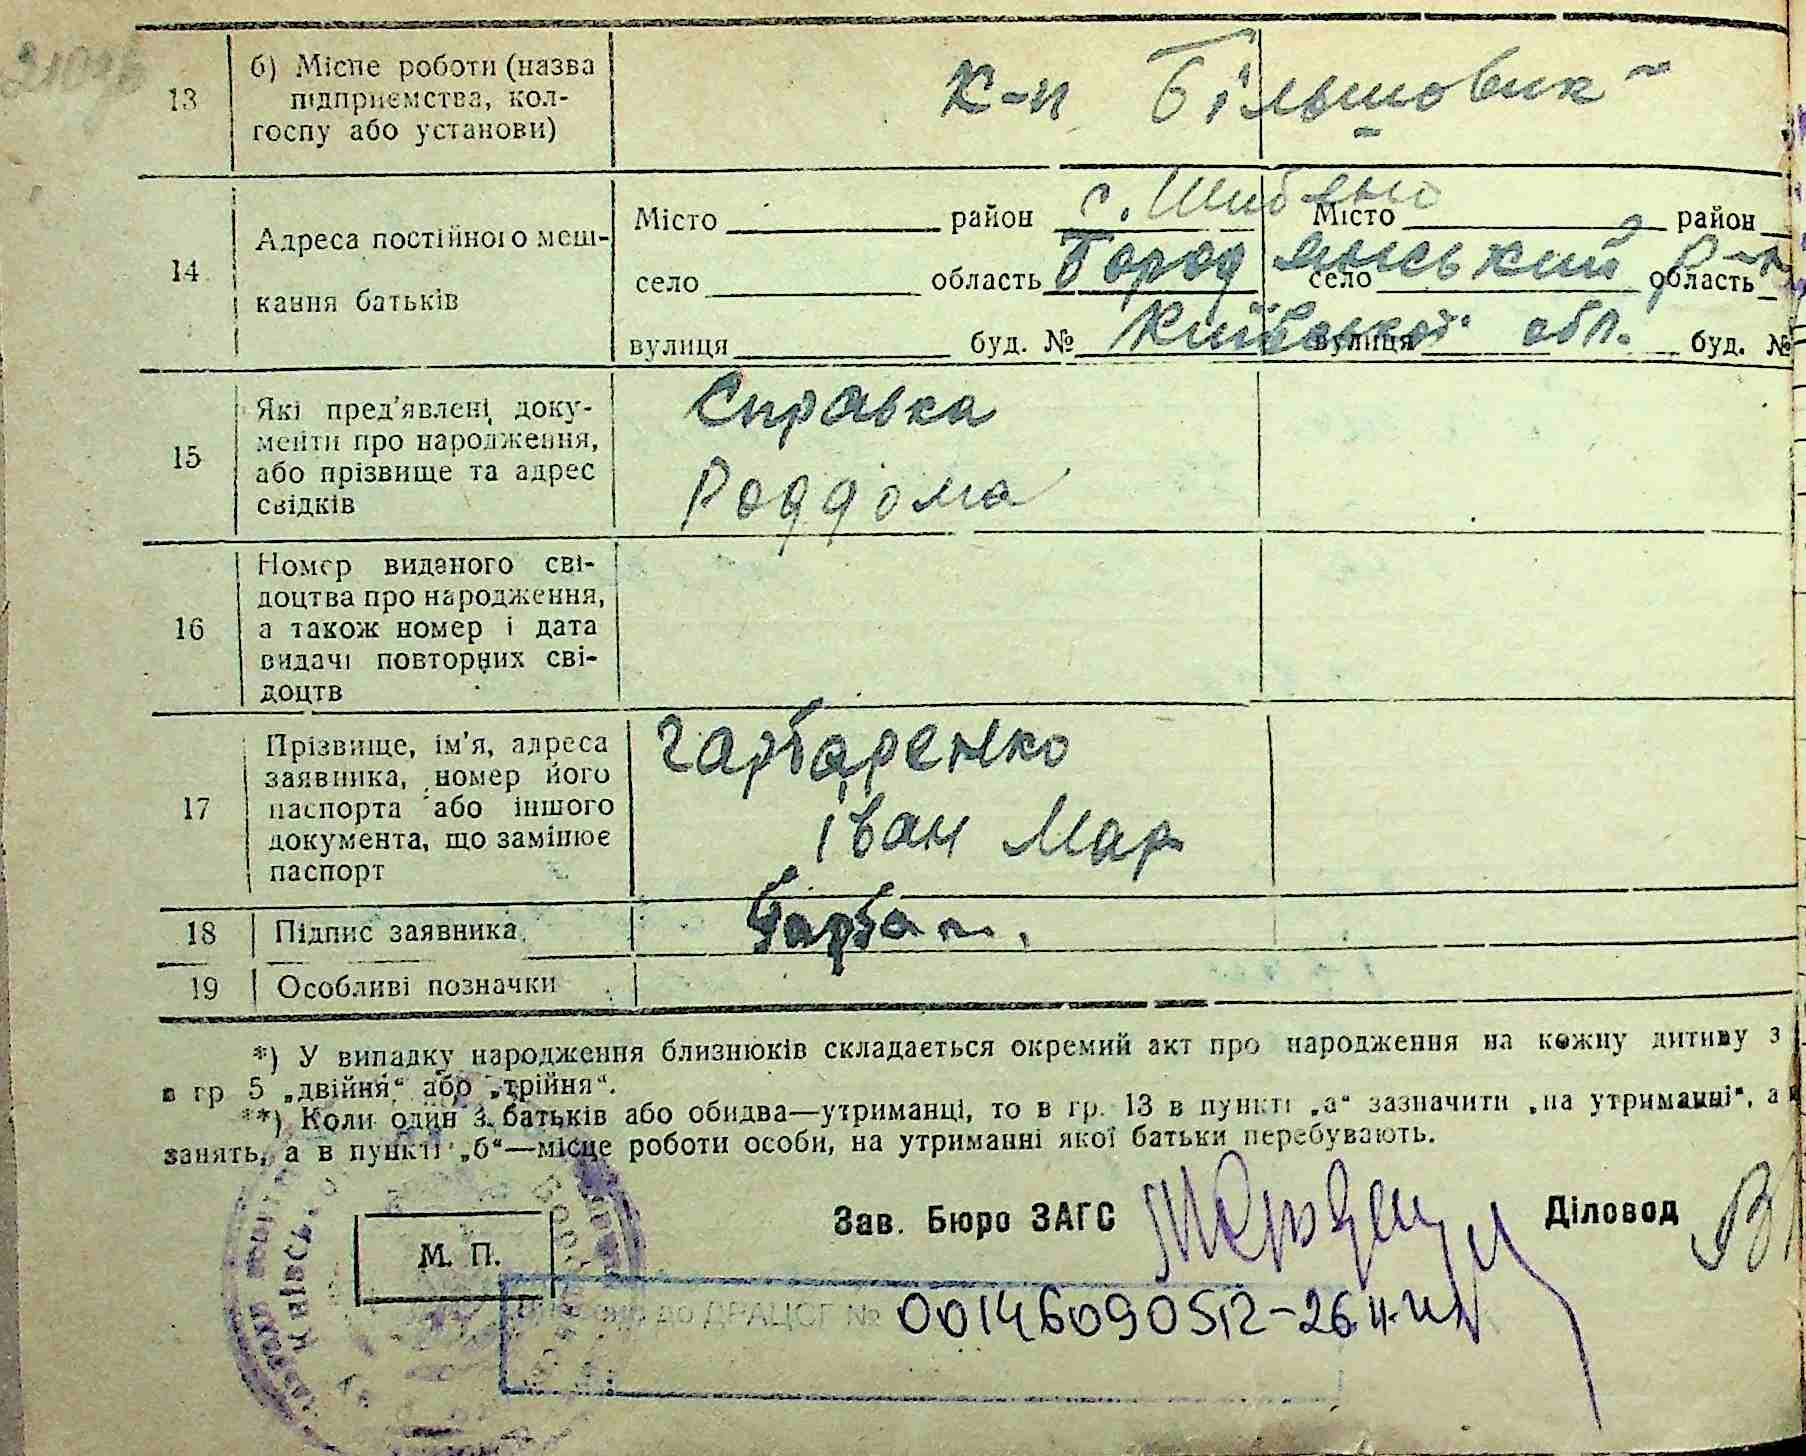 13
б) Місце роботи (назва
підприємства, кол-
госпу або установи)
к-п Більшовик
14
Адреса постійного меш-
кання батьків
Місто район с. Шибене Місто район
село область Бородянський р-н село область
вулиця буд. № Київської обл. вулиця буд. №
15
Які пред'явлені доку-
менти про народження,
або прізвище та адрес
свідків
Справка
Роддома
16
Номер виданого сві-
доцтва про народження,
а також номер і дата
видачі повторних сві-
доцтв
17
Прізвище, ім'я, адреса
заявника, номер його
паспорта або іншого
документа, що замінює
паспорт
Гарбаренко
Іван Мар
18 Підпис заявника
19 Особливі позначки
*) У випадку народження близнюків складається окремий акт про народження на кожну дитину з
в гр 5 „двійня“ або „трійня“.
**) Коли один з батьків або обидва—утриманці, то в гр. 13 в пункті „а“ зазначити „на утриманні“, а в
занять, а в пункті „б“—місце роботи особи, на утриманні якої батьки перебувають.
Зав. Бюро ЗАГС Діловод
М. П.
до ДРАЦСГ № 00146090512-26